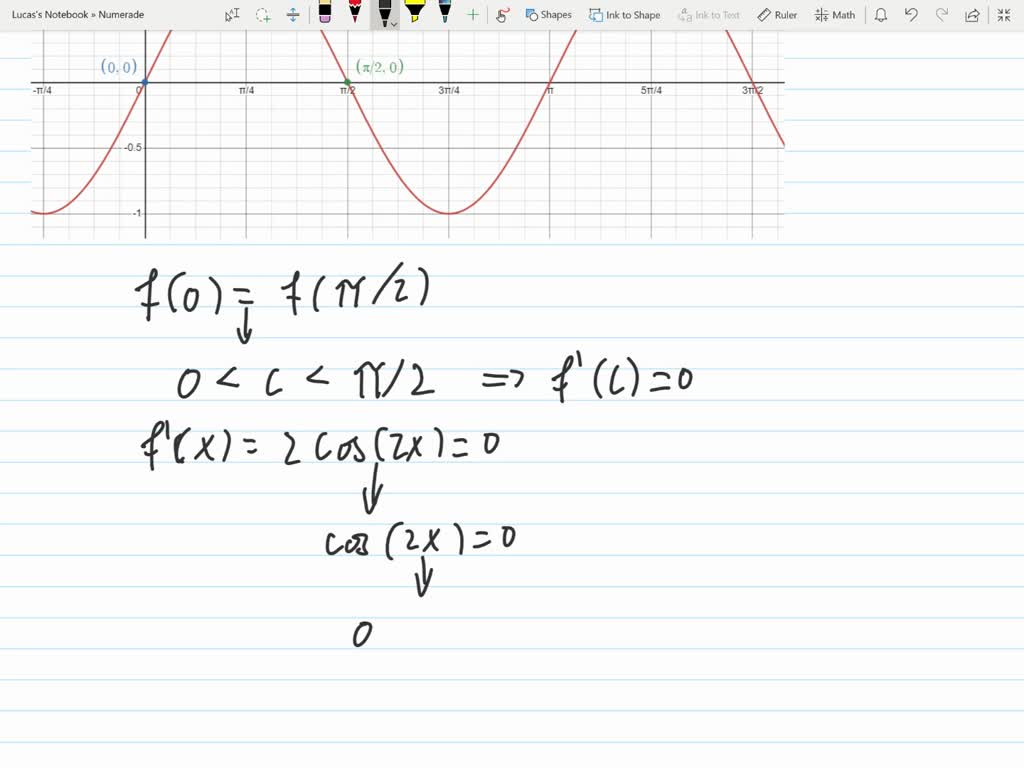 Lucas's Notebook » Numerade
Shapes Ink to Shape Ink to Text Ruler Math
(0, 0) (π/2, 0)
-π/4 0 π/4 π/2 3π/4 π 5π/4 3π/2
-0.5
-1
f(0) = f(π/2)
0 < c < π/2 => f'(c) = 0
f'(x) = 2 cos(2x) = 0
cos (2x) = 0
0